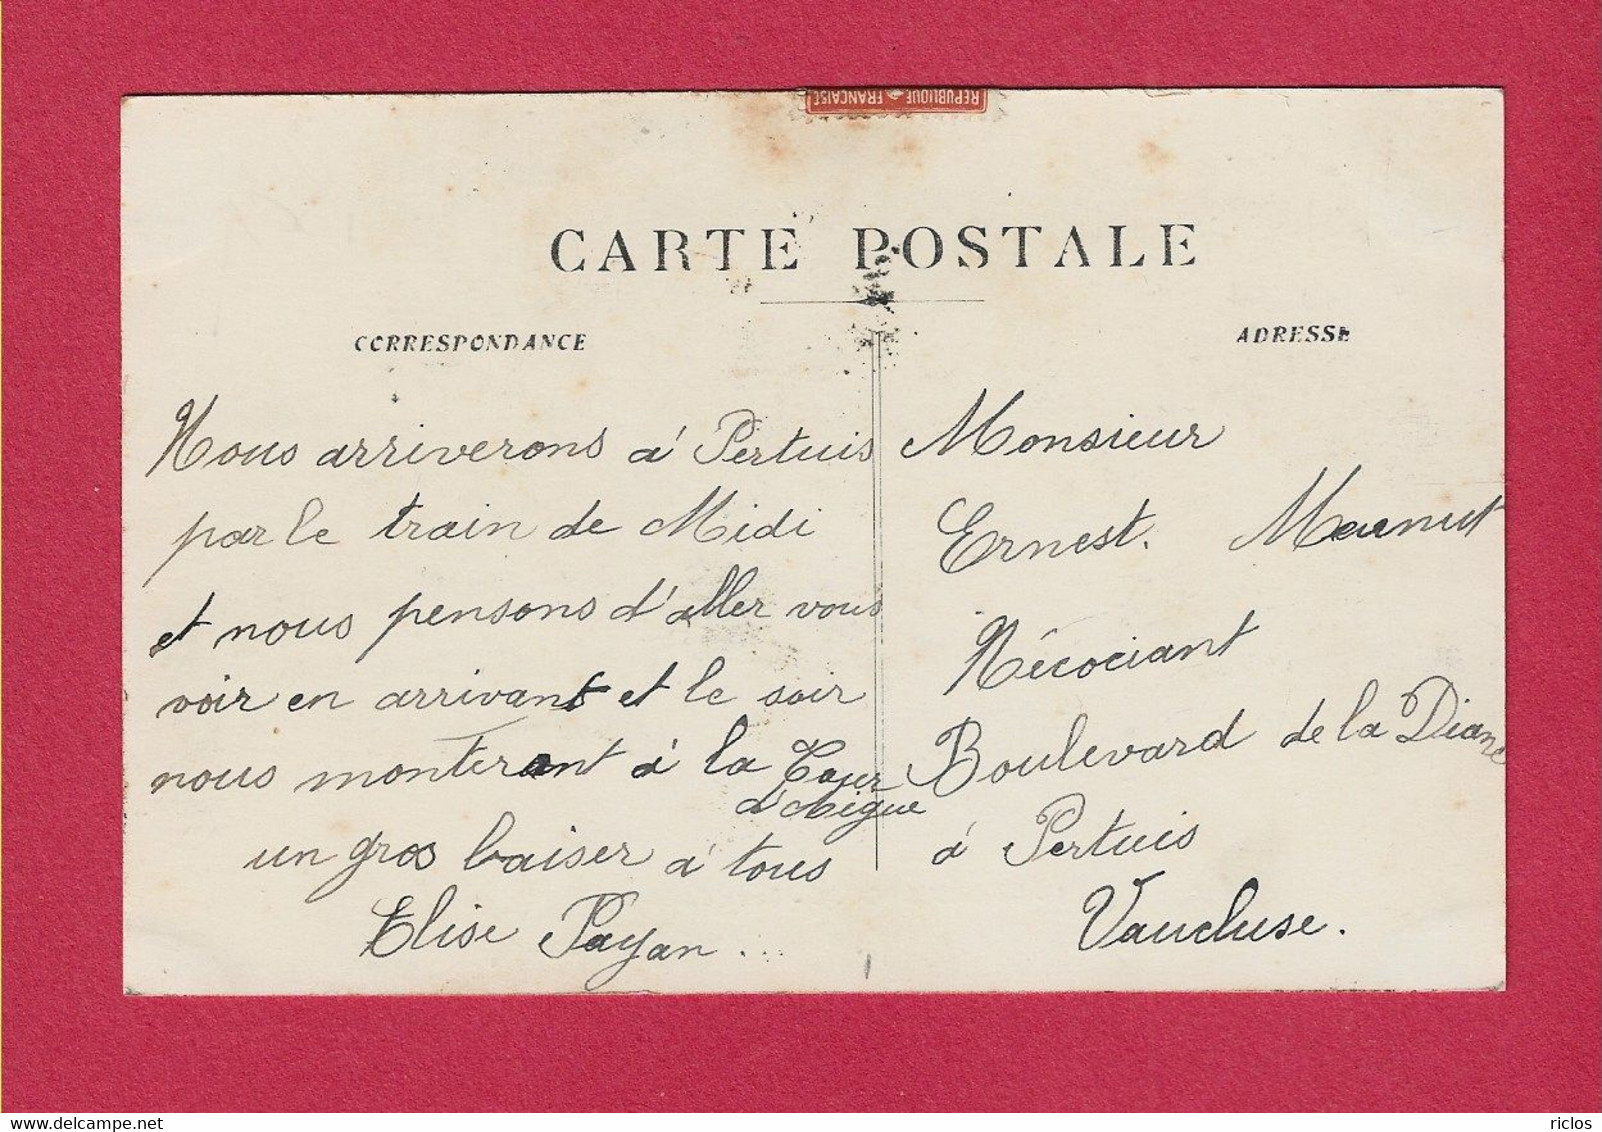 REPUBLIQUE FRANCAISE
CARTE POSTALE
CORRESPONDANCE
Nous arriverons à Pertuis
par le train de Midi
et nous pensons d'aller vous
voir en arrivant et le soir
nous monteront à la Tour
d'Aigue
un gros baiser à tous
Elise Payan.
ADRESSE
Monsieur
Ernest.
Nécociant
Boulevard de la Diane
à Pertuis
Vaucluse.
delcampe.net
riclos